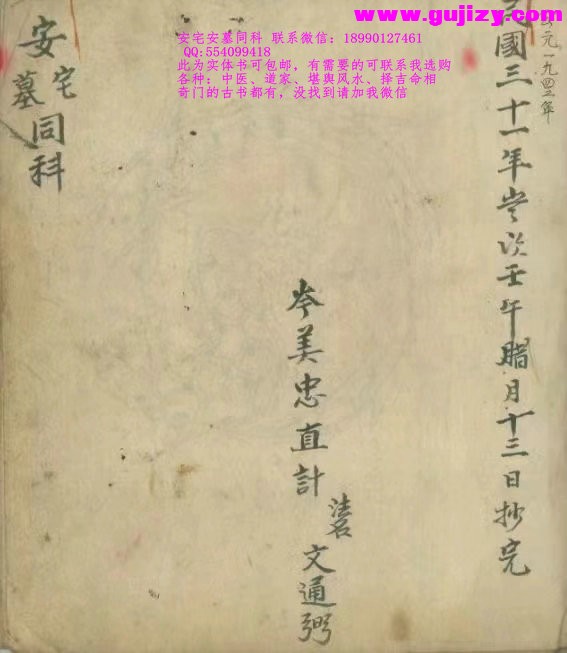 www.gujizy.com
安宅安墓同科 联系微信：18990127461
QQ:554099418
此为实体书可包邮，有需要的可联系我选购
各种：中医、道家、堪舆风水、择吉命相
奇门的古书都有，没找到请加我微信
元一九四二年
國三十一年岁次壬午腊月十三日抄完
岑美忠直計
法名
文通弼
安宅墓同科